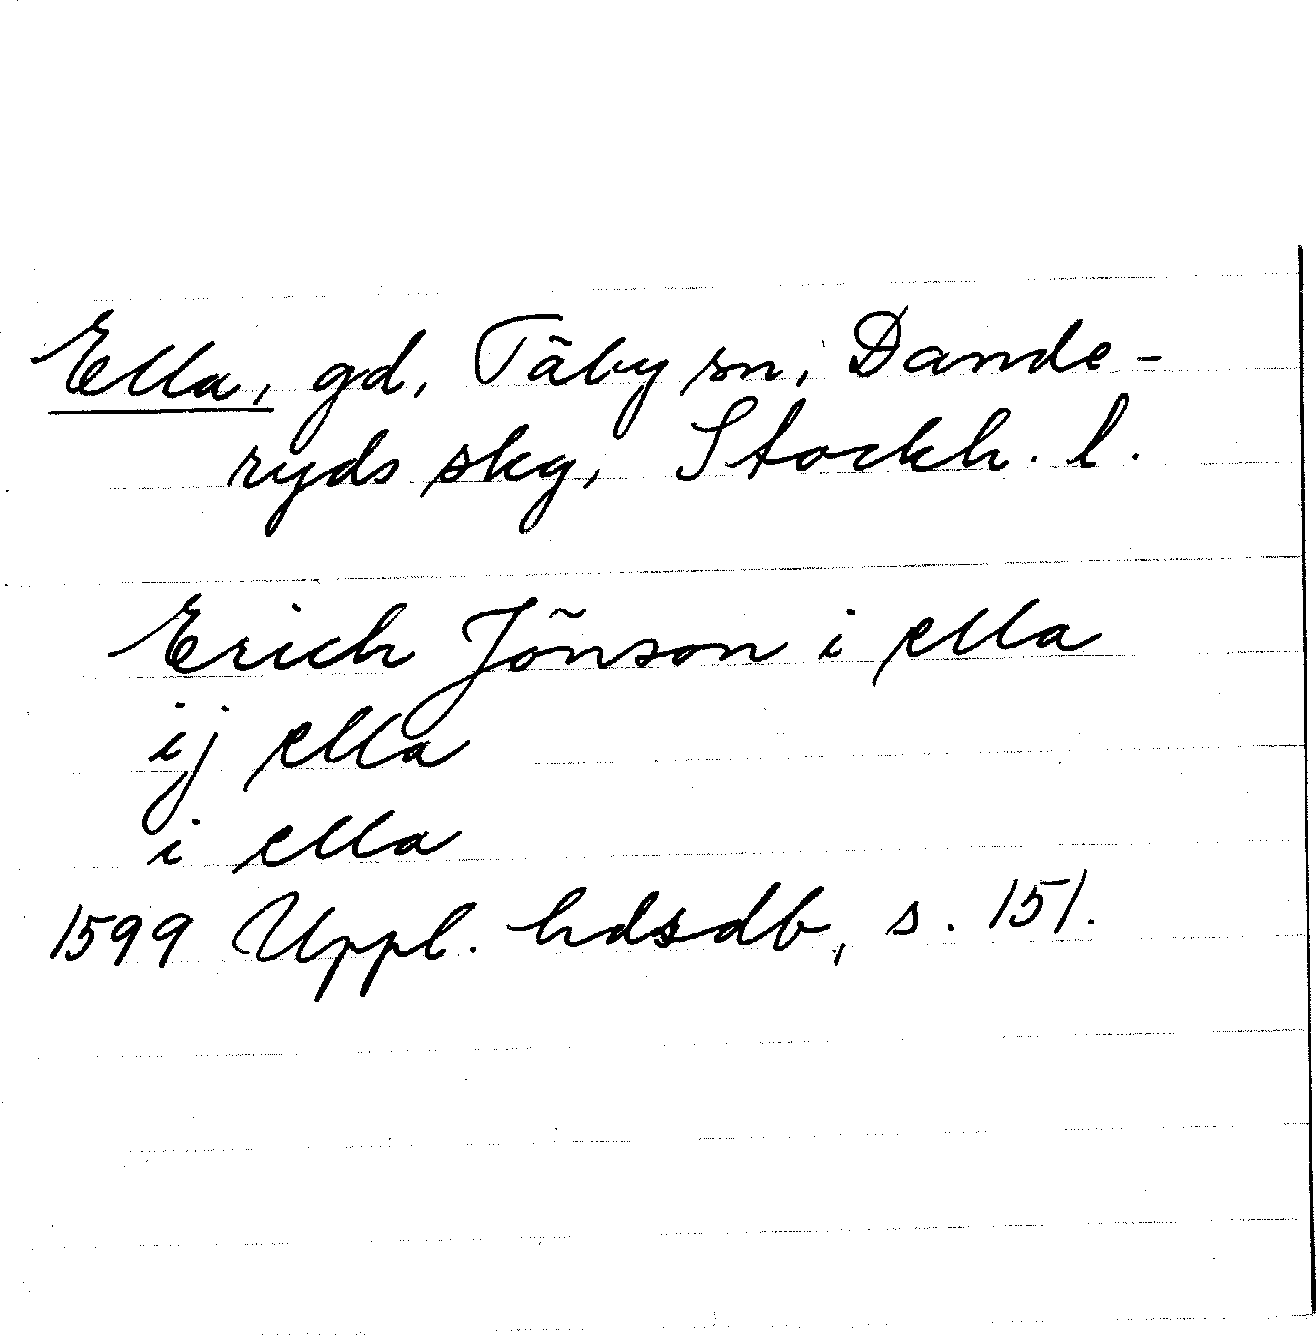 Ella, gd, Täby sn, Dande-
ryds skg, Stockh. l.
Erich Jönson i ella
ij ella
i ella
1599 Uppl. hdsdb, s. 151.